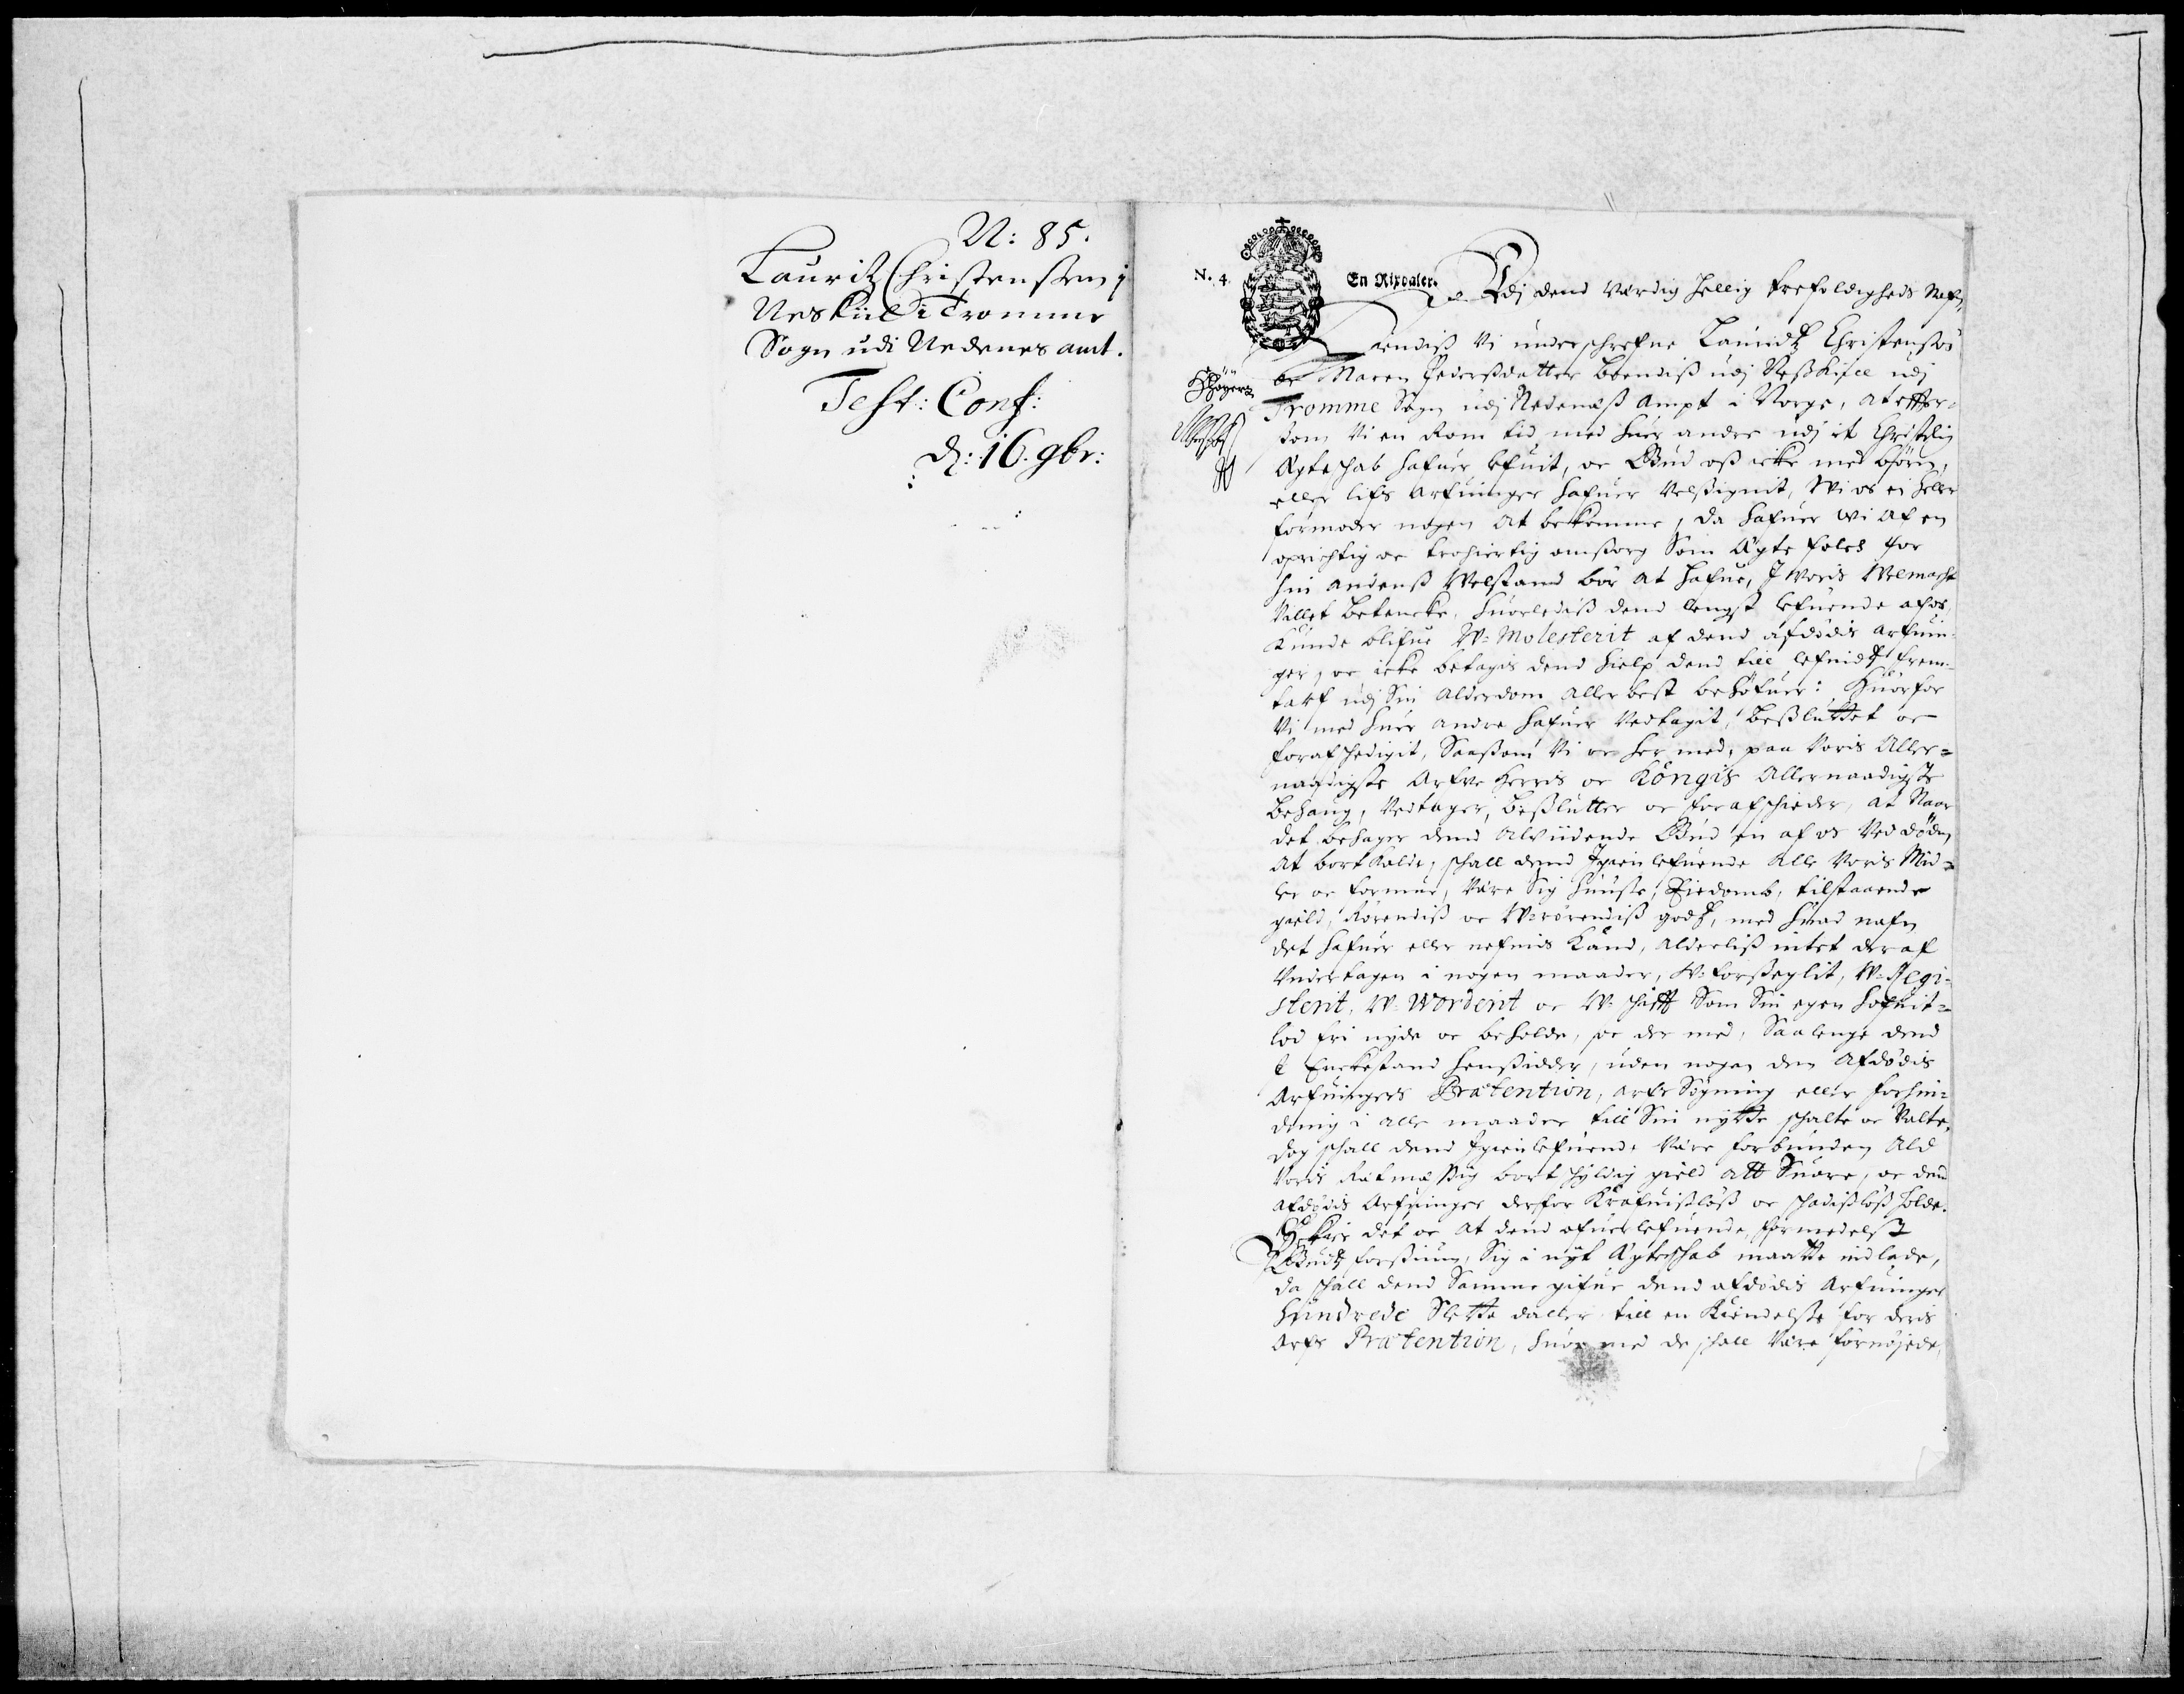 N: 85.
Lauritz Christensen i
Neskiil i Tromme
Sogn udi Nedenes amt.
Test: Conf:
d: 16. 9br:
N. 4.
En Rixdaler.
Udj dend Værdig hellig trefoldigheds Nafn,
Kiendiß Vi underschrefne Lauridtz Christensøn
oc Maren Pedersdatter boendiß udj Neßkiill udj
Tromme Sogn udj Nedenæß Ampt i Norge, at effter-
som Vi en Rom tid med huer andre udj it Christelig
Ægteschab hafuer lefuit, oc Gud oß icke med børn,
eller lifs Arfuinger hafuer Velsignit, Wi os ei heller
formoder nogen at bekomme, da hafuer wi af en
oprichtig oc trohiertig omsorg Som Ægte folck for
hin andenß Welstand bør at hafue, I Voris Velmacht
Villet betencke, huorledis dend lengst lefuende af os,
kunde blifue W-Molesterit af dend afdødis arfuin-
ger, oc icke betagis dend hielp dend till lefnidtz frem-
tarf udj Sin Alderdom allerbest behøfuer: Huorfor
Vi med huer andre hafuer Vedtagit, beßluttet oc
forafschedigit, Saasom Vi oc her med, paa Voris Aller-
naadigste Arfve Herris oc Kongis Allernaadigste
Behaug, Vedtager, beßlutter oc forafschieder, at Naar
det behager dend Alviidende Gud en af os Ved døden
at bortkalde, schall dend Igienlefuende alle Voris Mid-
ler oc formue, Være Sig huuse, Eiedomb, tilstaaende
gield, Rørendiß oc W-rørendiß godtz, med huad nafn
det hafuer eller nefnis kand, Alderliß intet deraf
Undertagen i nogen maader, W-forseglit, W-Regi-
sterit, W-Worderit oc W-schifft Som Sin egen hofuit-
lod fri nyde oc beholde, oc der med, Saalenge dend
I Enckestand hensidder, uden nogen den Afdødis
Arfuingers Prætention, arfs Søgning eller forhin-
dring i alle maader till Sin nytte schalte oc Valte,
dog schall dend Igienlefuende Være forbunden Ald
Voris Retmæssig bortschyldig gield att Suare, oc dend
afdødis Arfuinger derfor Kræfuisløß oc schadisløß holde.
Skeer det oc at dend ofuerlefuende, formedelst
Gudtz forsiun, Sig i nyt Ægteschab maatte indlade,
da schall dend Samme gifue dend afdødis Arfuinger
Hundrede Slette daller till en Kiendelse for deris
Arfs Prætention, huor med de schall Være fornøjede,